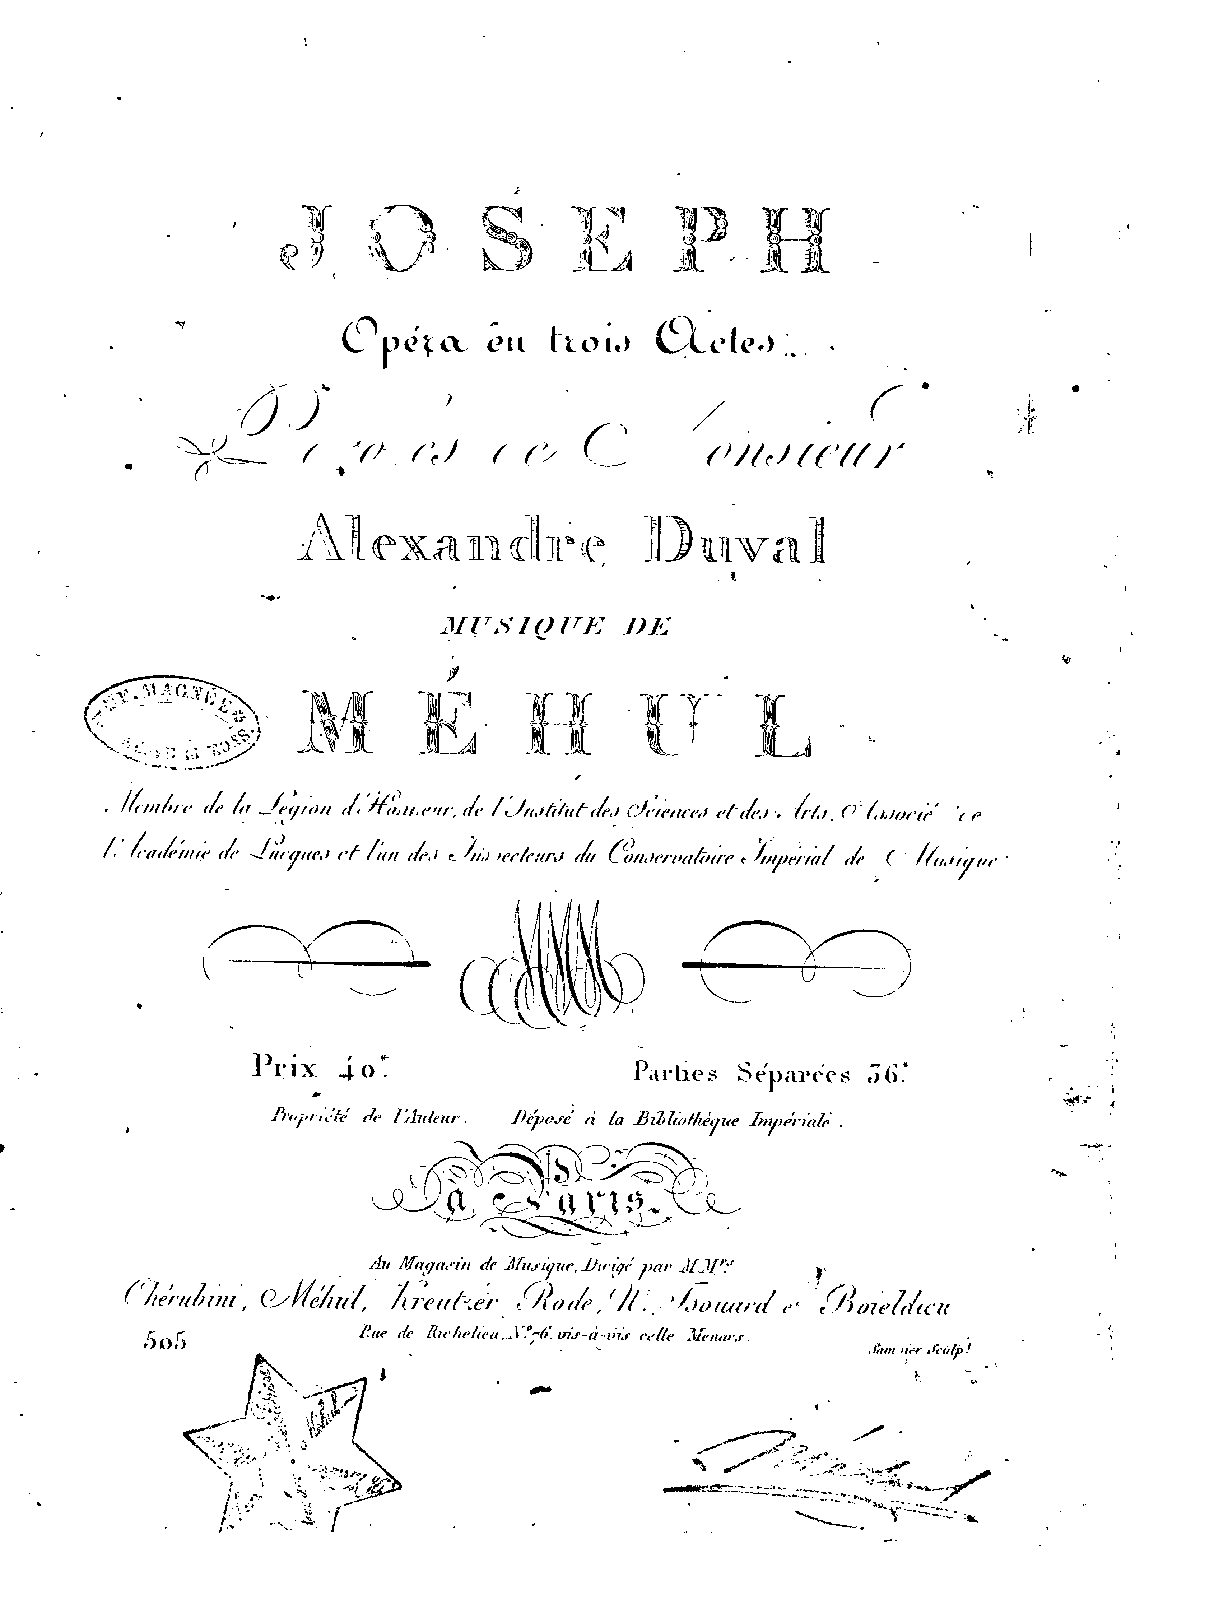 JOSEPH
Opéra en trois Actes.
Paroles de Monsieur
Alexandre Duval
MUSIQUE DE
MÉHUL
Membre de la Légion d'Honneur, de l'Institut des Sciences et des Arts, Associé de
l'Académie de Lucques et l'un des Inspecteurs du Conservatoire Impérial de Musique
Prix 40.ᶠ Parties Séparées 36.ᶠ
Propriété de l'Auteur. Déposé à la Bibliothèque Impériale.
à Paris.
Au Magasin de Musique, Dirigé par M.Mʳˢ
Chérubini, Méhul, Kreutzer, Rode, N. Isouard et Boieldieu
Rue de Richelieu, Nº 76, vis-à-vis celle Menars.
505
Sculp!
Méhul